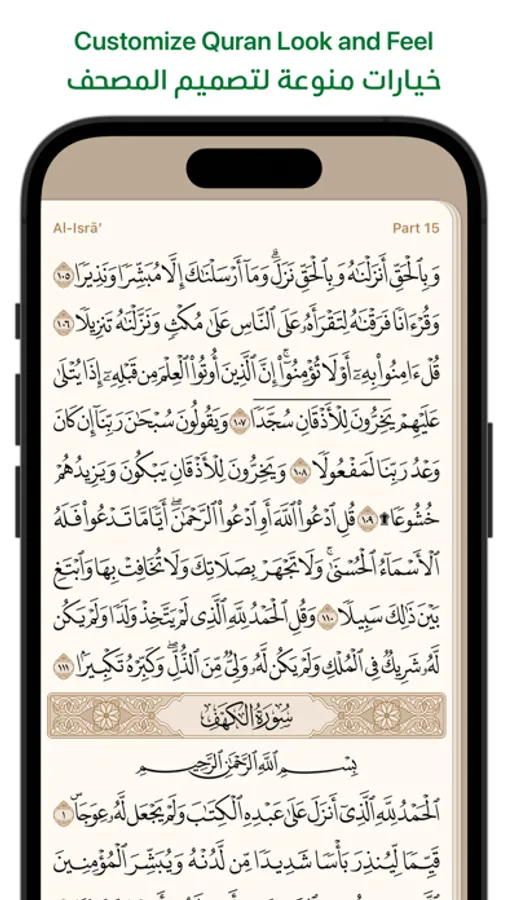 Customize Quran Look and Feel
خيارات منوعة لتصميم المصحف
Al-Isrā’ Part 15
وَبِٱلۡحَقِّ أَنزَلۡنَٰهُ وَبِٱلۡحَقِّ نَزَلَۗ وَمَآ أَرۡسَلۡنَٰكَ إِلَّا مُبَشِّرٗا وَنَذِيرٗا ١٠٥
وَقُرۡءَانٗا فَرَقۡنَٰهُ لِتَقۡرَأَهُۥ عَلَى ٱلنَّاسِ عَلَىٰ مُكۡثٖ وَنَزَّلۡنَٰهُ تَنزِيلٗا ١٠٦
قُلۡ ءَامِنُواْ بِهِۦٓ أَوۡ لَا تُؤۡمِنُوٓاْۚ إِنَّ ٱلَّذِينَ أُوتُواْ ٱلۡعِلۡمَ مِن قَبۡلِهِۦٓ إِذَا يُتۡلَىٰ
عَلَيۡهِمۡ يَخِرُّونَۤ لِلۡأَذۡقَانِۤ سُجَّدٗاۤ ١٠٧ وَيَقُولُونَ سُبۡحَٰنَ رَبِّنَآ إِن كَانَ
وَعۡدُ رَبِّنَا لَمَفۡعُولٗا ١٠٨ وَيَخِرُّونَ لِلۡأَذۡقَانِ يَبۡكُونَ وَيَزِيدُهُمۡ
خُشُوعٗا۩ ١٠٩ قُلِ ٱدۡعُواْ ٱللَّهَ أَوِ ٱدۡعُواْ ٱلرَّحۡمَٰنَۖ أَيّٗا مَّا تَدۡعُواْ فَلَهُ
ٱلۡأَسۡمَآءُ ٱلۡحُسۡنَىٰۚ وَلَا تَجۡهَرۡ بِصَلَاتِكَ وَلَا تُخَافِتۡ بِهَا وَٱبۡتَغِ
بَيۡنَ ذَٰلِكَ سَبِيلٗا ١١٠ وَقُلِ ٱلۡحَمۡدُ لِلَّهِ ٱلَّذِي لَمۡ يَتَّخِذۡ وَلَدٗا وَلَمۡ يَكُن
لَّهُۥ شَرِيكٞ فِي ٱلۡمُلۡكِ وَلَمۡ يَكُن لَّهُۥ وَلِيّٞ مِّنَ ٱلذُّلِّۖ وَكَبِّرۡهُ تَكۡبِيرَۢا ١١١
سُورَةُ الكَهۡفِ
بِسۡمِ ٱللَّهِ ٱلرَّحۡمَٰنِ ٱلرَّحِيمِ
ٱلۡحَمۡدُ لِلَّهِ ٱلَّذِيٓ أَنزَلَ عَلَىٰ عَبۡدِهِ ٱلۡكِتَٰبَ وَلَمۡ يَجۡعَل لَّهُۥ عِوَجَاۜ ١
قَيِّمٗا لِّيُنذِرَ بَأۡسٗا شَدِيدٗا مِّن لَّدُنۡهُ وَيُبَشِّرَ ٱلۡمُؤۡمِنِينَ